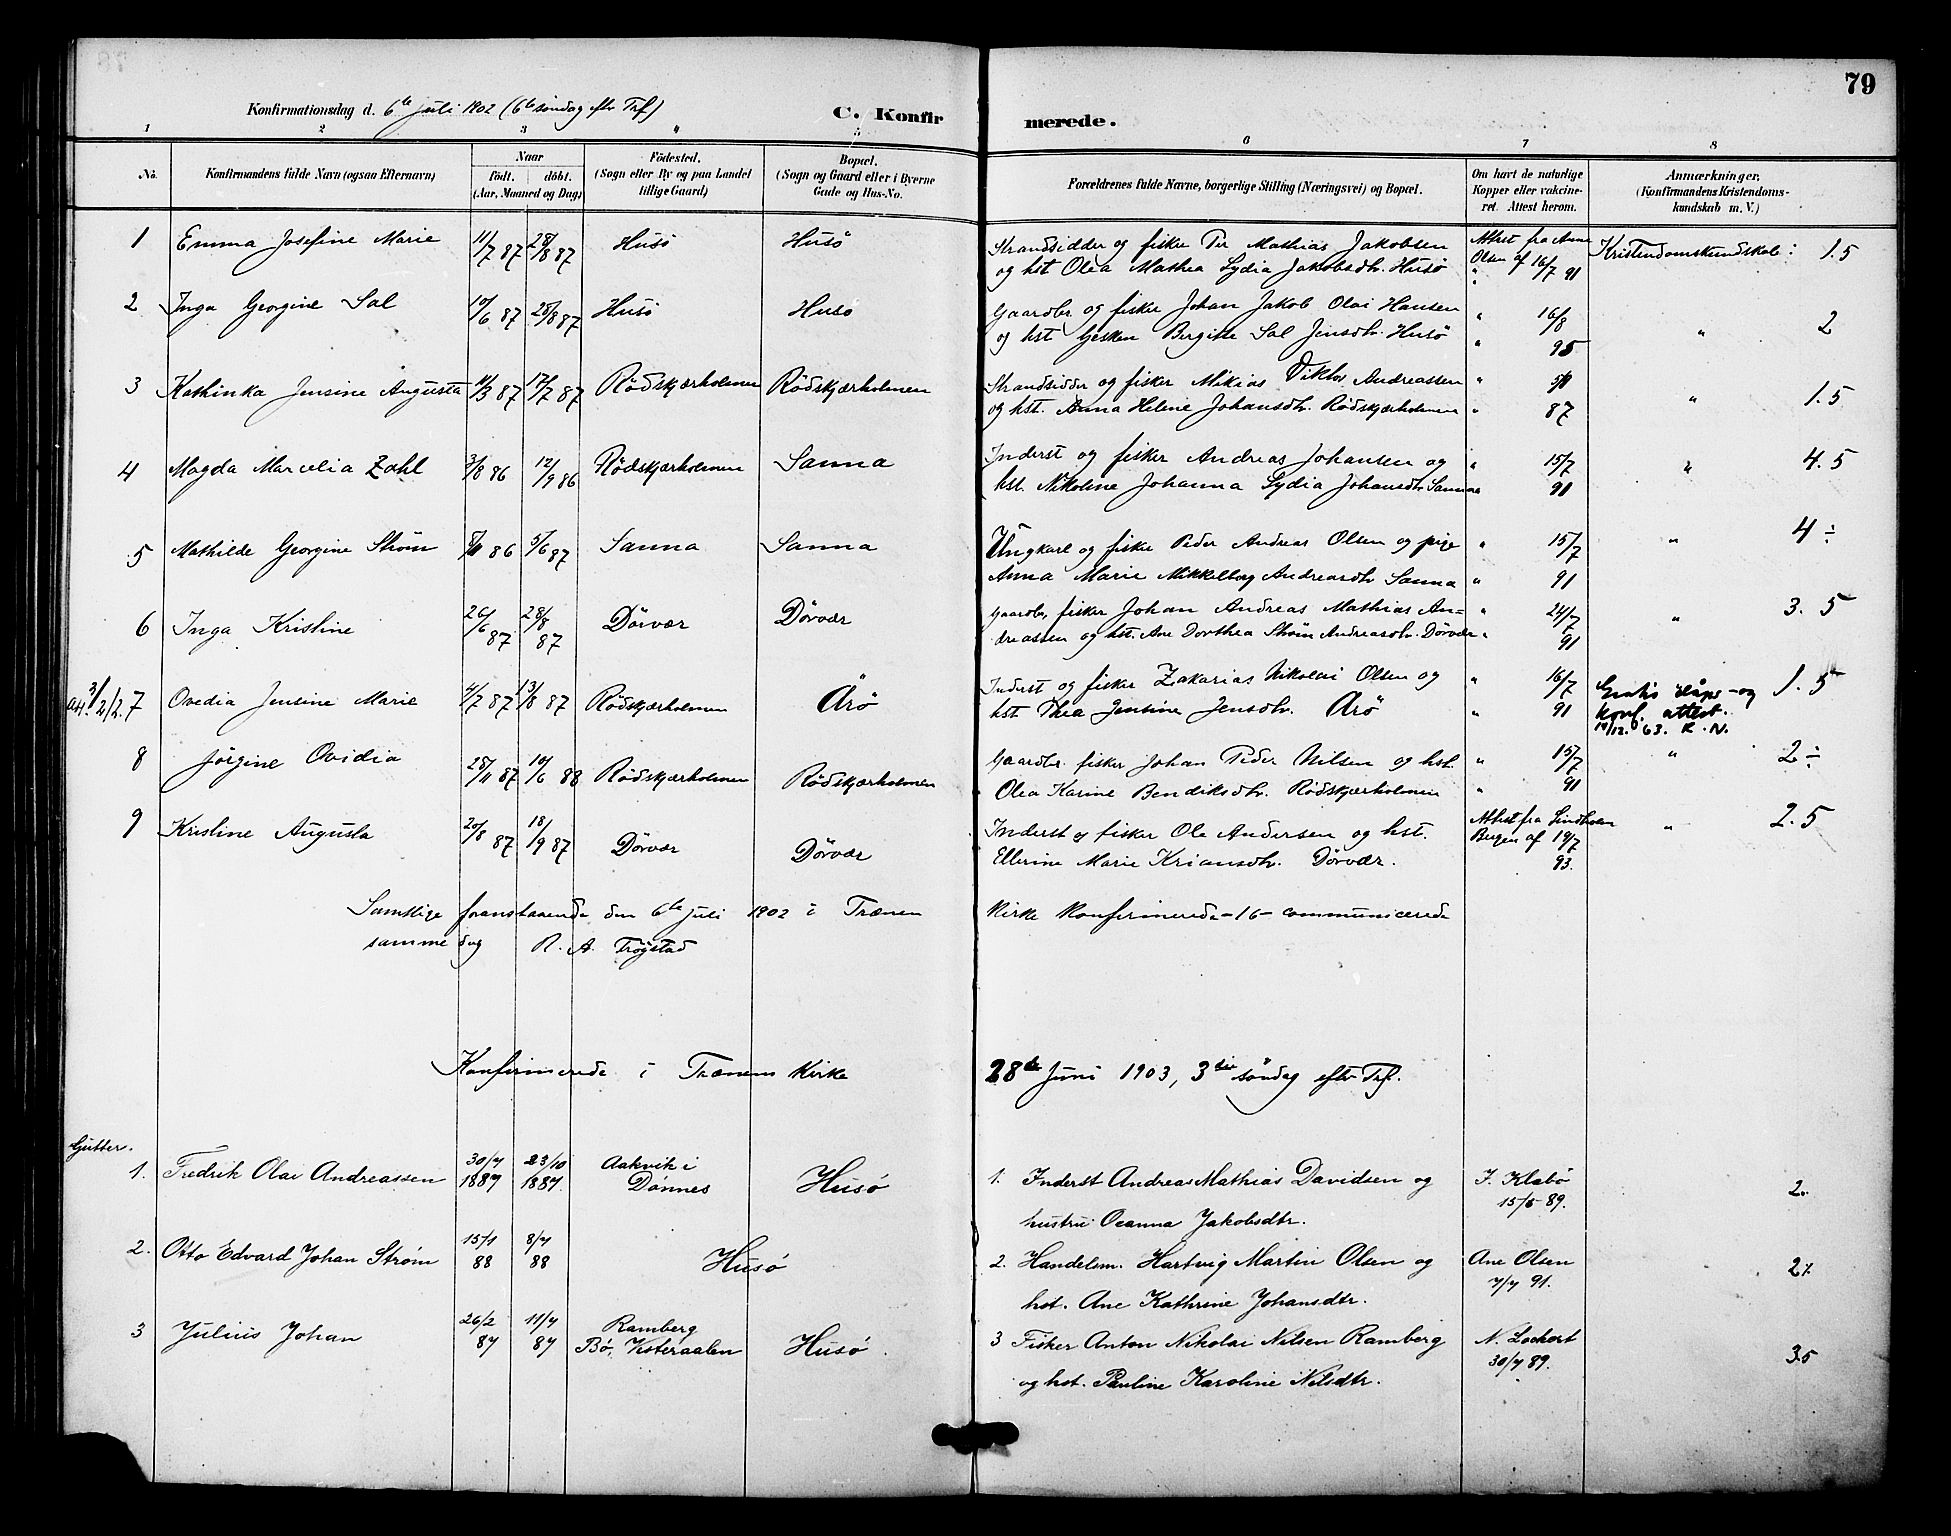 79
Konfirmationsdag d. 6te juli 1902 (6te søndag eftr Trf)
C. Konfirmerede.
1 2 3 4 5 6 7 8
No. Konfirmandens fulde Navn (ogsaa Efternavn) Naar født. døbt. (Aar, Maaned og Dag) Fødested. (Sogn eller By og paa Landet tillige Gaard) Bopæl. (Sogn og Gaard eller i Byerne Gade og Hus-No. Forældrenes fulde Navne, borgerlige Stilling (Næringsvei) og Bopæl. Om havt de naturlige Kopper eller vakcineret. Attest herom. Anmærkninger, (Konfirmandens Kristendomskundskab m. V.)
1 Emma Josefine Marie 11/7 87 28/8 87 Husö Husö Strandsidder og fisker Per Mathias Jakobsen Attest fra Anne Kristendomskundskab: 1.5
og hst Olea Mathea Lydia Jakobsdtr. Husö Olsen af 16/7 91
2 Inga Georgine Sal 10/6 87 28/8 87 Husö Husö Gaardbr og fisker Johan Jakob Olai Hansen " 16/8 " 2
og hst Gesken Birgitte Sal Jensdtr. Husö " 95
3 Kathinka Jensine Augusta 11/3 87 17/7 87 Rödskjærholmen Rödskjærholmen Strandsidder og fisker Mikias Viktor Andreassen " " 1.5
og hst. Anna Heline Johansdtr. Rödskjærholmen " 87
4 Magda Marcelia Zahl 3/8 86 12/9 86 Rödskjærholmen Sanna Inderst og fisker Andreas Johansen og " 15/7 " 4.5
hst. Nikoline Johanna Lydia Johansdtr Sanna 91
5 Mathilde Georgine Strøm 86 5/6 87 Sanna Sanna Ungkarl og fisker Peder Andreas Olsen og pige " 15/7 " 4 ÷
Anna Marie Mikkelborg Andreasdtr Sanna " 91
6 Inga Kristine 26/6 87 28/8 87 Dörvær Dörvær Gaardbr, fisker Johan Andreas Mathias An= " 24/7 " 3.5
dreassen og hst. Ane Dorthea Strøm Andreasdtr. Dörvær " 91
att. 3/2/2. 7 Ovedia Jensine Marie 4/7 87 13/8 87 Rödskjærholmen Årö Inderst og fisker Zakarias Nikolai Olsen og " 16/7 Gratis dåps- og 1.5
hst Thea Jensine Jensdtr. Årö " 91 konf. attest.
10/12. 63. K. N.
8 Jörgine Ovidia 28/11 87 10/6 88 Rödskjærholmen Rödskjærholmen Gaardbr. fisker Johan Peder Nilsen og hst. " 15/7 " 2 ÷
Olea Karine Bendiksdtr. Rödskjærholmen " 91
9 Kristine Augusta 20/8 87 18/9 87 Dörvær Dörvær Inderst og fisker Ole Andersen og hst. Attest fra Lindholm " 2.5
Ellerine Marie Kriansdtr. Dörvær. Bergen af 19/7 93.
Samtlige foranstaaende den 6te juli 1902 i Trænen Kirke Konfirmerede - 16 - communicerede
samme dag R. A. Trøgstad
Konfirmerede i Trænens Kirke 28de Juni 1903, 3die söndag eftr Trf.
Gutter.
1. Fredrik Olai Andreassen 30/7 1887 23/10 1887. Aakvik i Dønnes Husø 1. Inderst Andreas Mathias Davidsen og J. Klabö 2.
hustru Oeanna Jakobsdtr. 15/5 89.
2. Otto Edvard Johan Strøm 15/1 88 8/7 88 Husø 2. Handelsm. Hartvig Martin Olsen og Ane Olsen 2 ⁒
hst. Ane Kathrine Johansdtr. 7/7 91.
3 Julius Johan 26/2 87 11/7 87 Ramberg Bø, Vesteraalen Husø. 3 Fisker Anton Nikolai Nilsen Ramberg N. Lockert 3.5
og hst. Pauline Karoline Nilsdtr. 30/7 89.